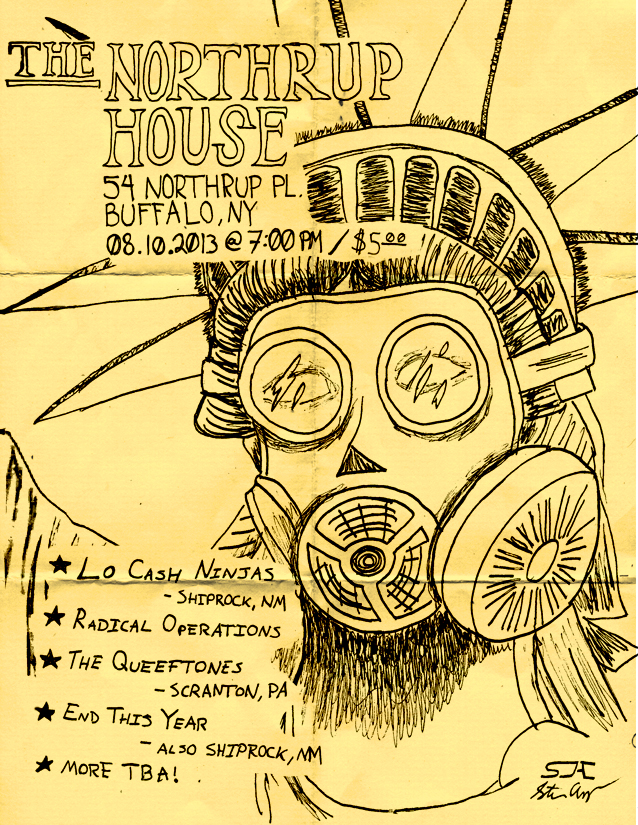 THE NORTHRUP
HOUSE
54 NORTHRUP PL.
BUFFALO, NY
08.10.2013 @ 7:00 PM / $5.00
★ LO CASH NINJAS
- SHIPROCK, NM
★ RADICAL OPERATIONS
★ THE QUEEFTONES
- SCRANTON, PA
★ END THIS YEAR
- ALSO SHIPROCK, NM
★ MORE TBA!